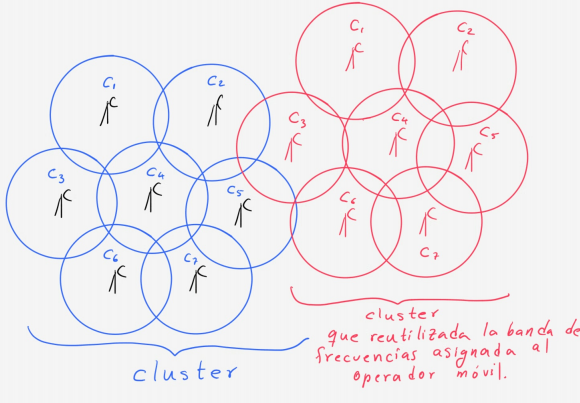 C1
C2
C3
C4
C5
C6
C7
cluster
C1
C2
C3
C4
C5
C6
C7
cluster
que reutilizada la banda de
frecuencias asignada al
operador móvil.